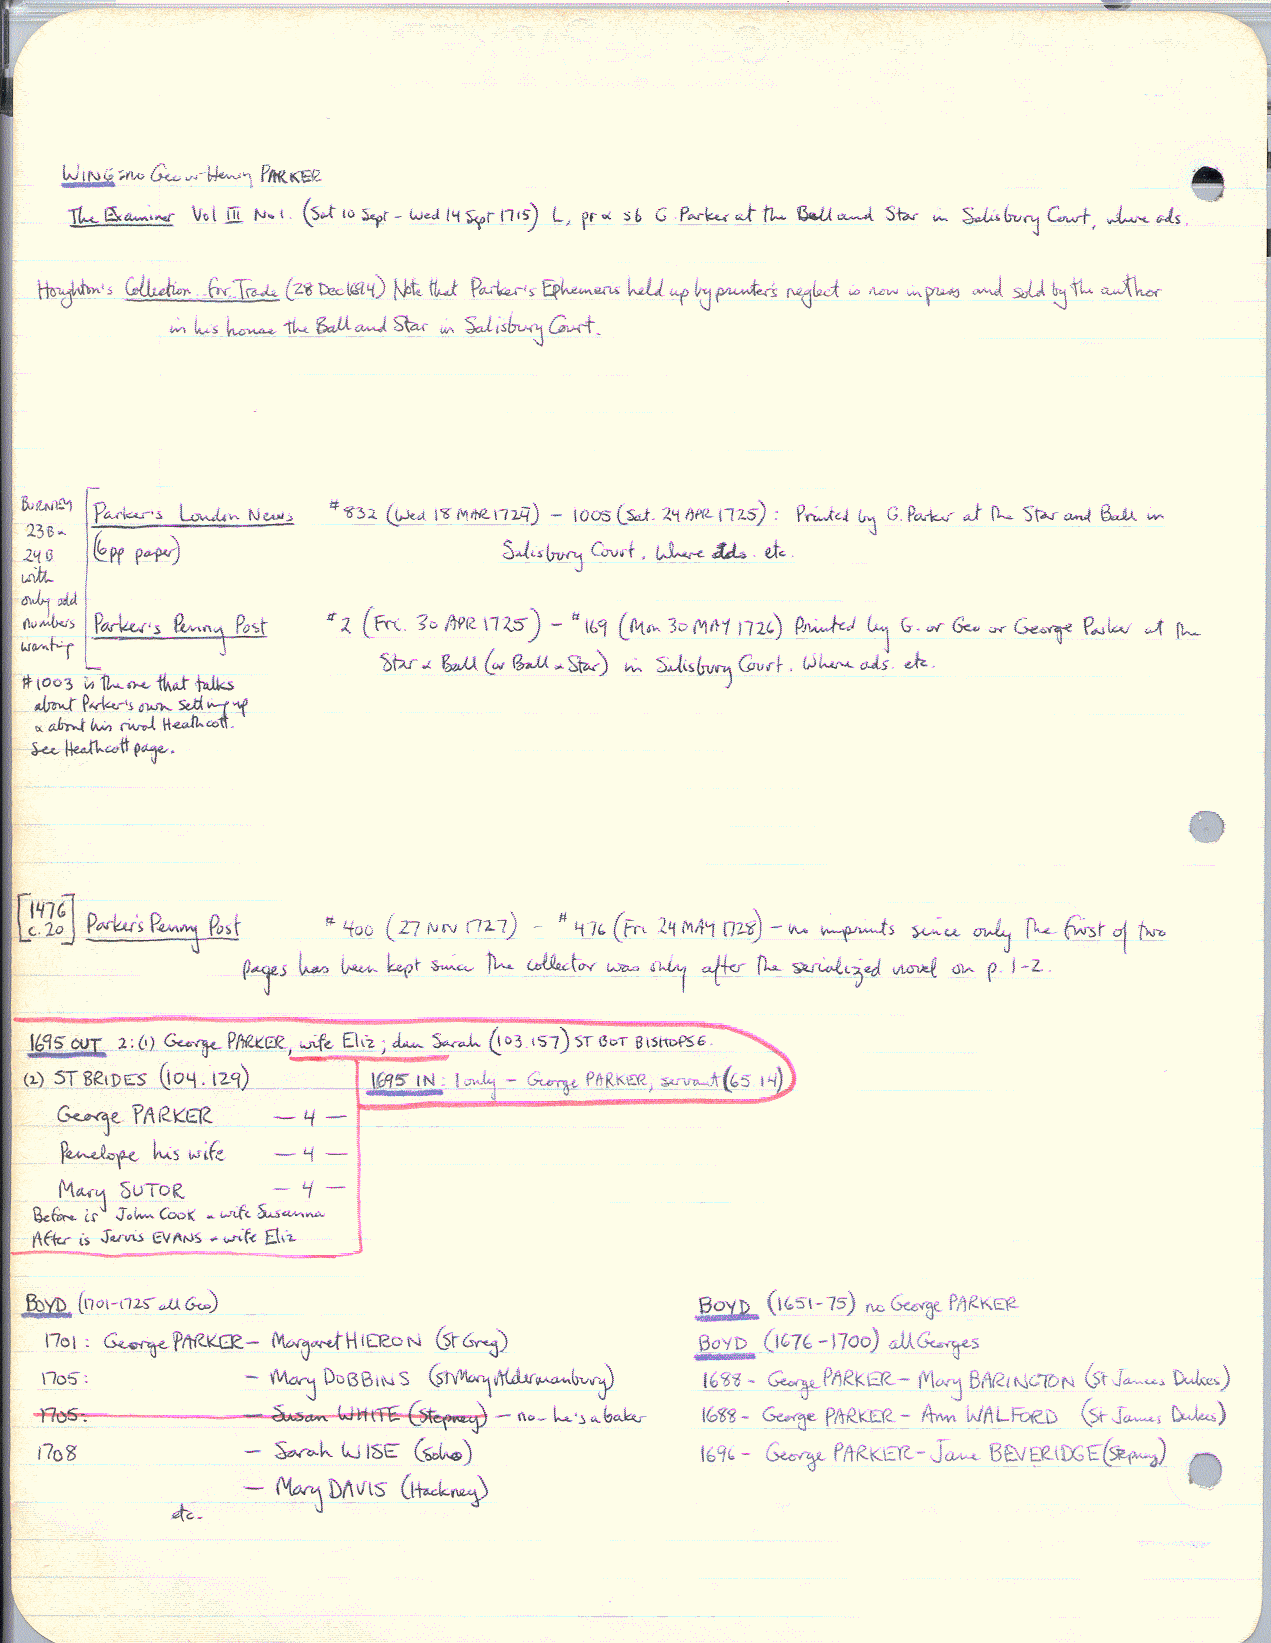 WING: no Geo or Henry PARKER
The Examiner Vol III No 1. (Sat 10 Sept - Wed 14 Sept 1715) L, pr & sb G. Parker at the Ball and Star in Salisbury Court, where ads.
Houghton's Collection for Trade (28 Dec 1694) Note that Parker's Ephemeris held up by printer's neglect is now in press and sold by the author
in his house the Ball and Star in Salisbury Court.
BURNEY
23B &
24B
with
only odd
numbers
wanting
Parker's London News #832 (Wed 18 MAR 1724) - 1005 (Sat. 24 APR 1725) : Printed by G. Parker at the Star and Ball in
(6pp paper) Salisbury Court. Where ads. etc.
Parker's Penny Post #2 (Fri. 30 APR 1725) - #169 (Mon 30 MAY 1726) Printed by G. or Geo or George Parker at the
Star & Ball (or Ball & Star) in Salisbury Court. Where ads. etc.
#1003 is the one that talks
about Parker's own setting up
& about his rival Heathcott.
See Heathcott page.
[1476
c.20] Parker's Penny Post #400 (27 NOV 1727) - #476 (Fri 24 MAY 1728) - no imprints since only the first of two
pages has been kept since the collector was only after the serialized novel on p. 1-2.
1695 OUT 2: (1) George PARKER, wife Eliz; dau Sarah (103.157) ST BOT BISHOPSG.
(2) ST BRIDES (104.129)
1695 IN: 1 only - George PARKER, servant (65 14)
George PARKER - 4 -
Penelope his wife - 4 -
Mary SUTOR - 4 -
Before is John COOK & wife Susanna
After is Jervis EVANS & wife Eliz
BOYD (1701-1725 all Geo)
1701: George PARKER - Margaret HIERON (St Greg)
1705: - Mary DOBBINS (St Mary Aldermanbury)
1705: - Susan WHITE (Stepney) - no - he's a baker
1708 - Sarah WISE (Soho)
- Mary DAVIS (Hackney)
etc.
BOYD (1651-75) no George PARKER
BOYD (1676-1700) all Georges
1688 - George PARKER - Mary BARINGTON (St James Dukes)
1688 - George PARKER - Ann WALFORD (St James Dukes)
1696 - George PARKER - Jane BEVERIDGE (Stepney)